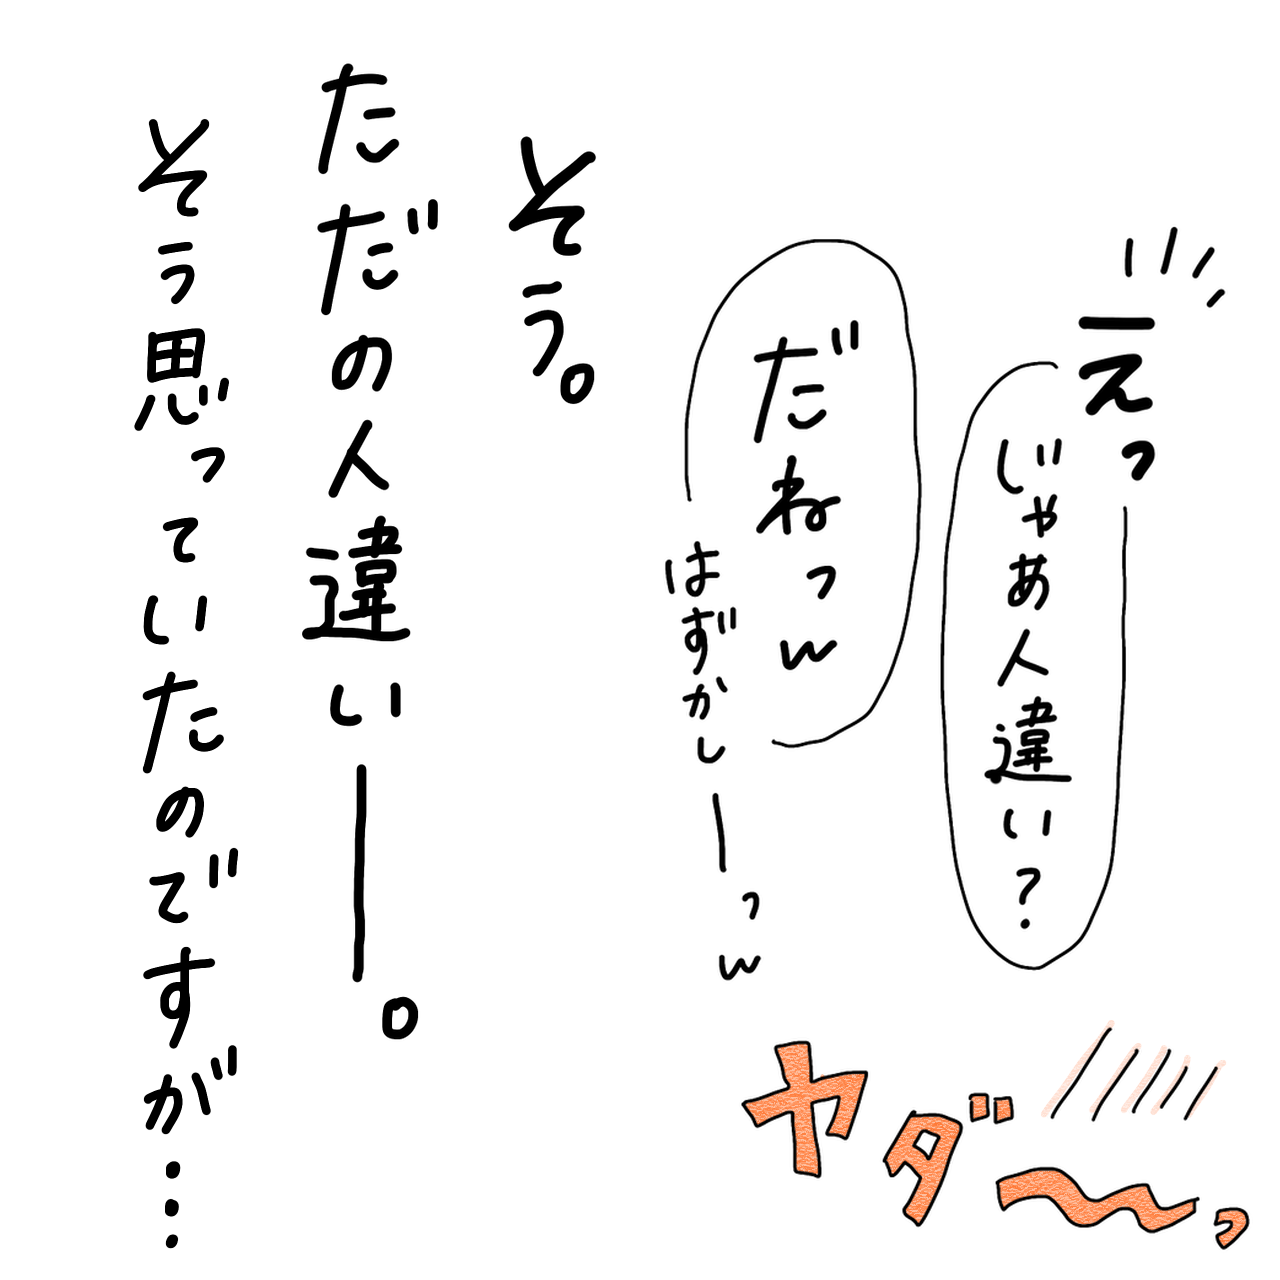 えっ
じゃあ人違い？
だねっw
はずかしーっw
ヤダ〜っ
そう。
ただの人違いー。
そう思っていたのですが…